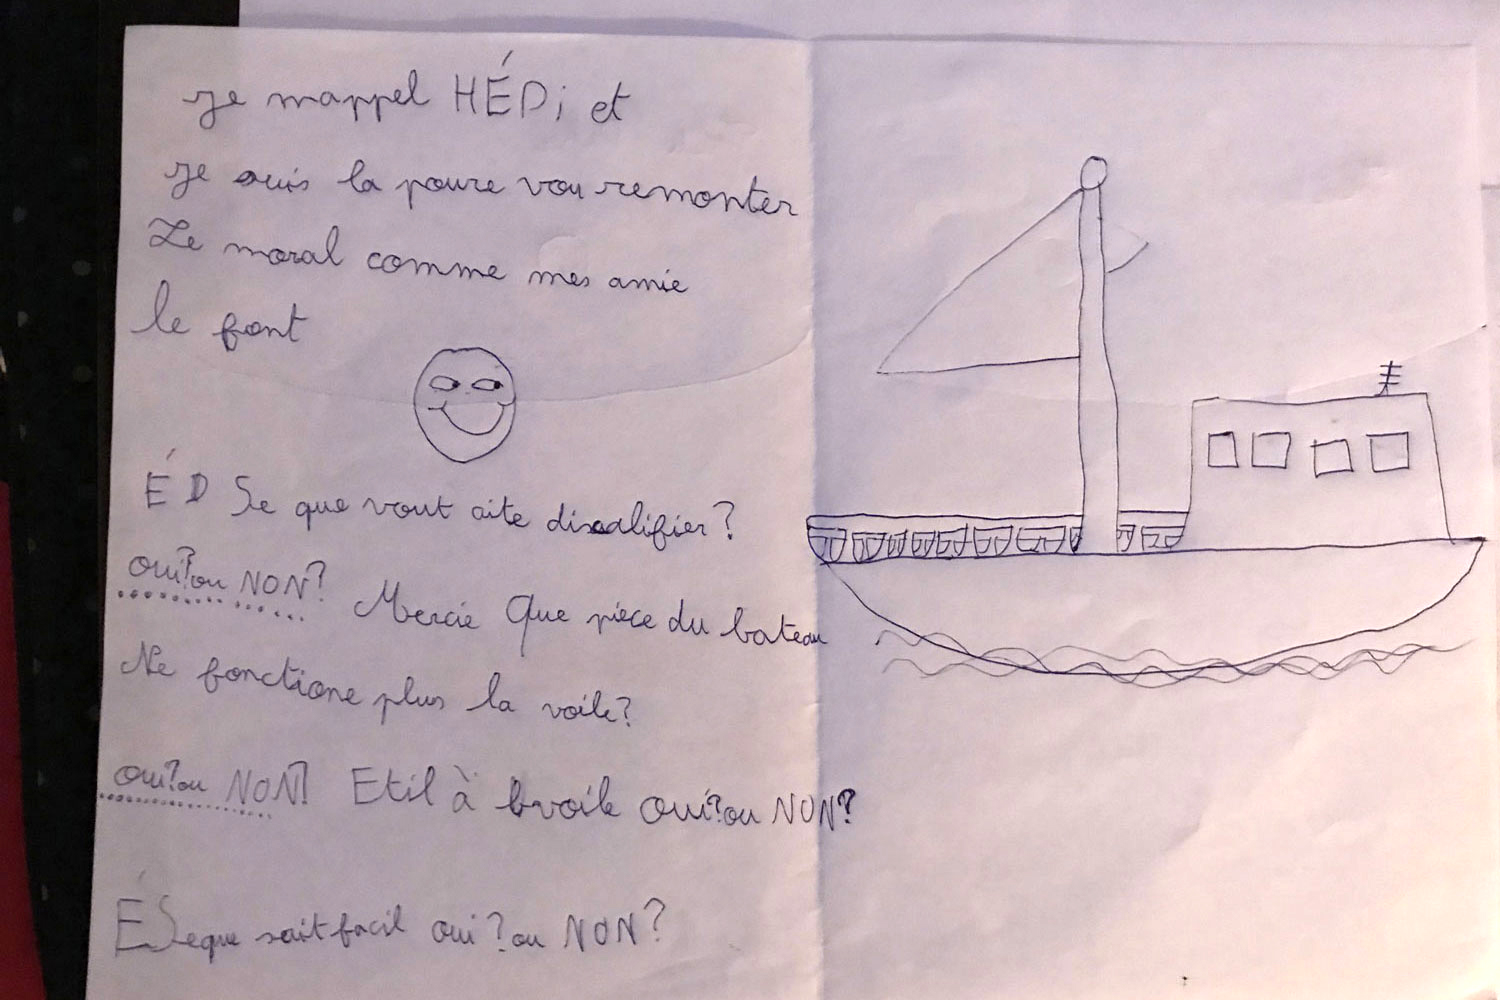 Je mappel HÉDi et
je suis la poure vou remonter
Le moral comme mes amie
le font
É D Se que vout aite disxalifier?
oui? ou NON? Mercie Que pièce du bateau
Ne fonctione plus la voile?
oui? ou NON? Etil à voile oui? ou NON?
ÉSeque sait facil oui? ou NON?